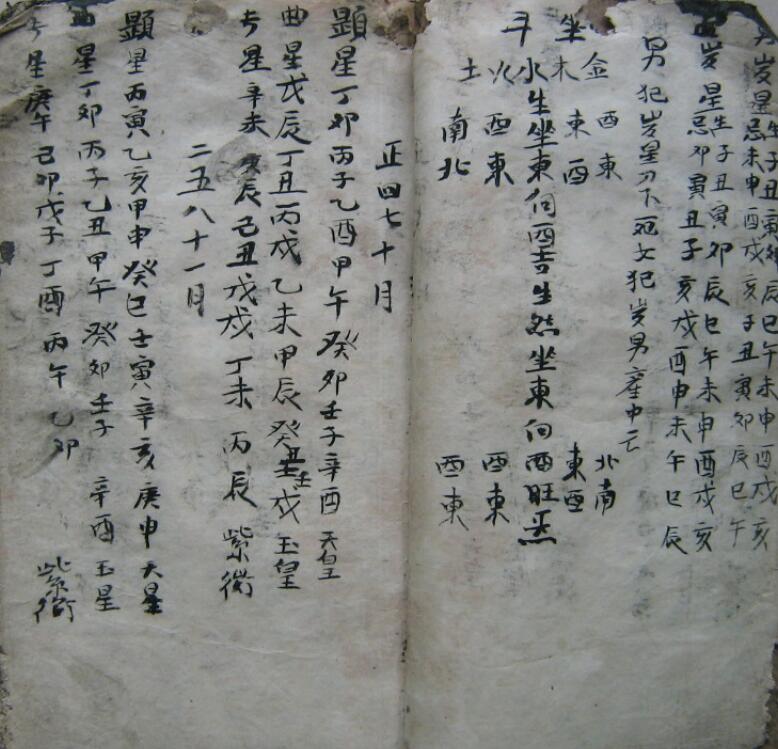 男岁星
生子丑寅卯辰巳午未申酉戌亥
忌未申酉戌亥子丑寅卯辰巳午
岁星
生子丑寅卯辰巳午未申酉戌亥
忌卯寅丑子亥戌酉申未午巳辰
男犯岁星刀下死女犯岁男産中亡
金 西東 北南
坐木 東西 東西
水生坐東向西吉生然坐東向西旺炁
斗火 西東 西東
土 南北 西東
正四七十月
顕星丁卯丙子乙酉甲午癸卯壬子辛酉 天皇
曲星戊辰丁丑丙戌乙未甲辰癸丑壬戌 玉皇
专星辛未庚辰己丑戊戌丁未丙辰 紫衛
二五八十一月
顕星丙寅乙亥甲申癸巳壬寅辛亥庚申 天星
曲星丁卯丙子乙丑甲午癸卯壬子辛酉 玉星
专星庚午己卯戊子丁酉丙午乙卯 紫衛